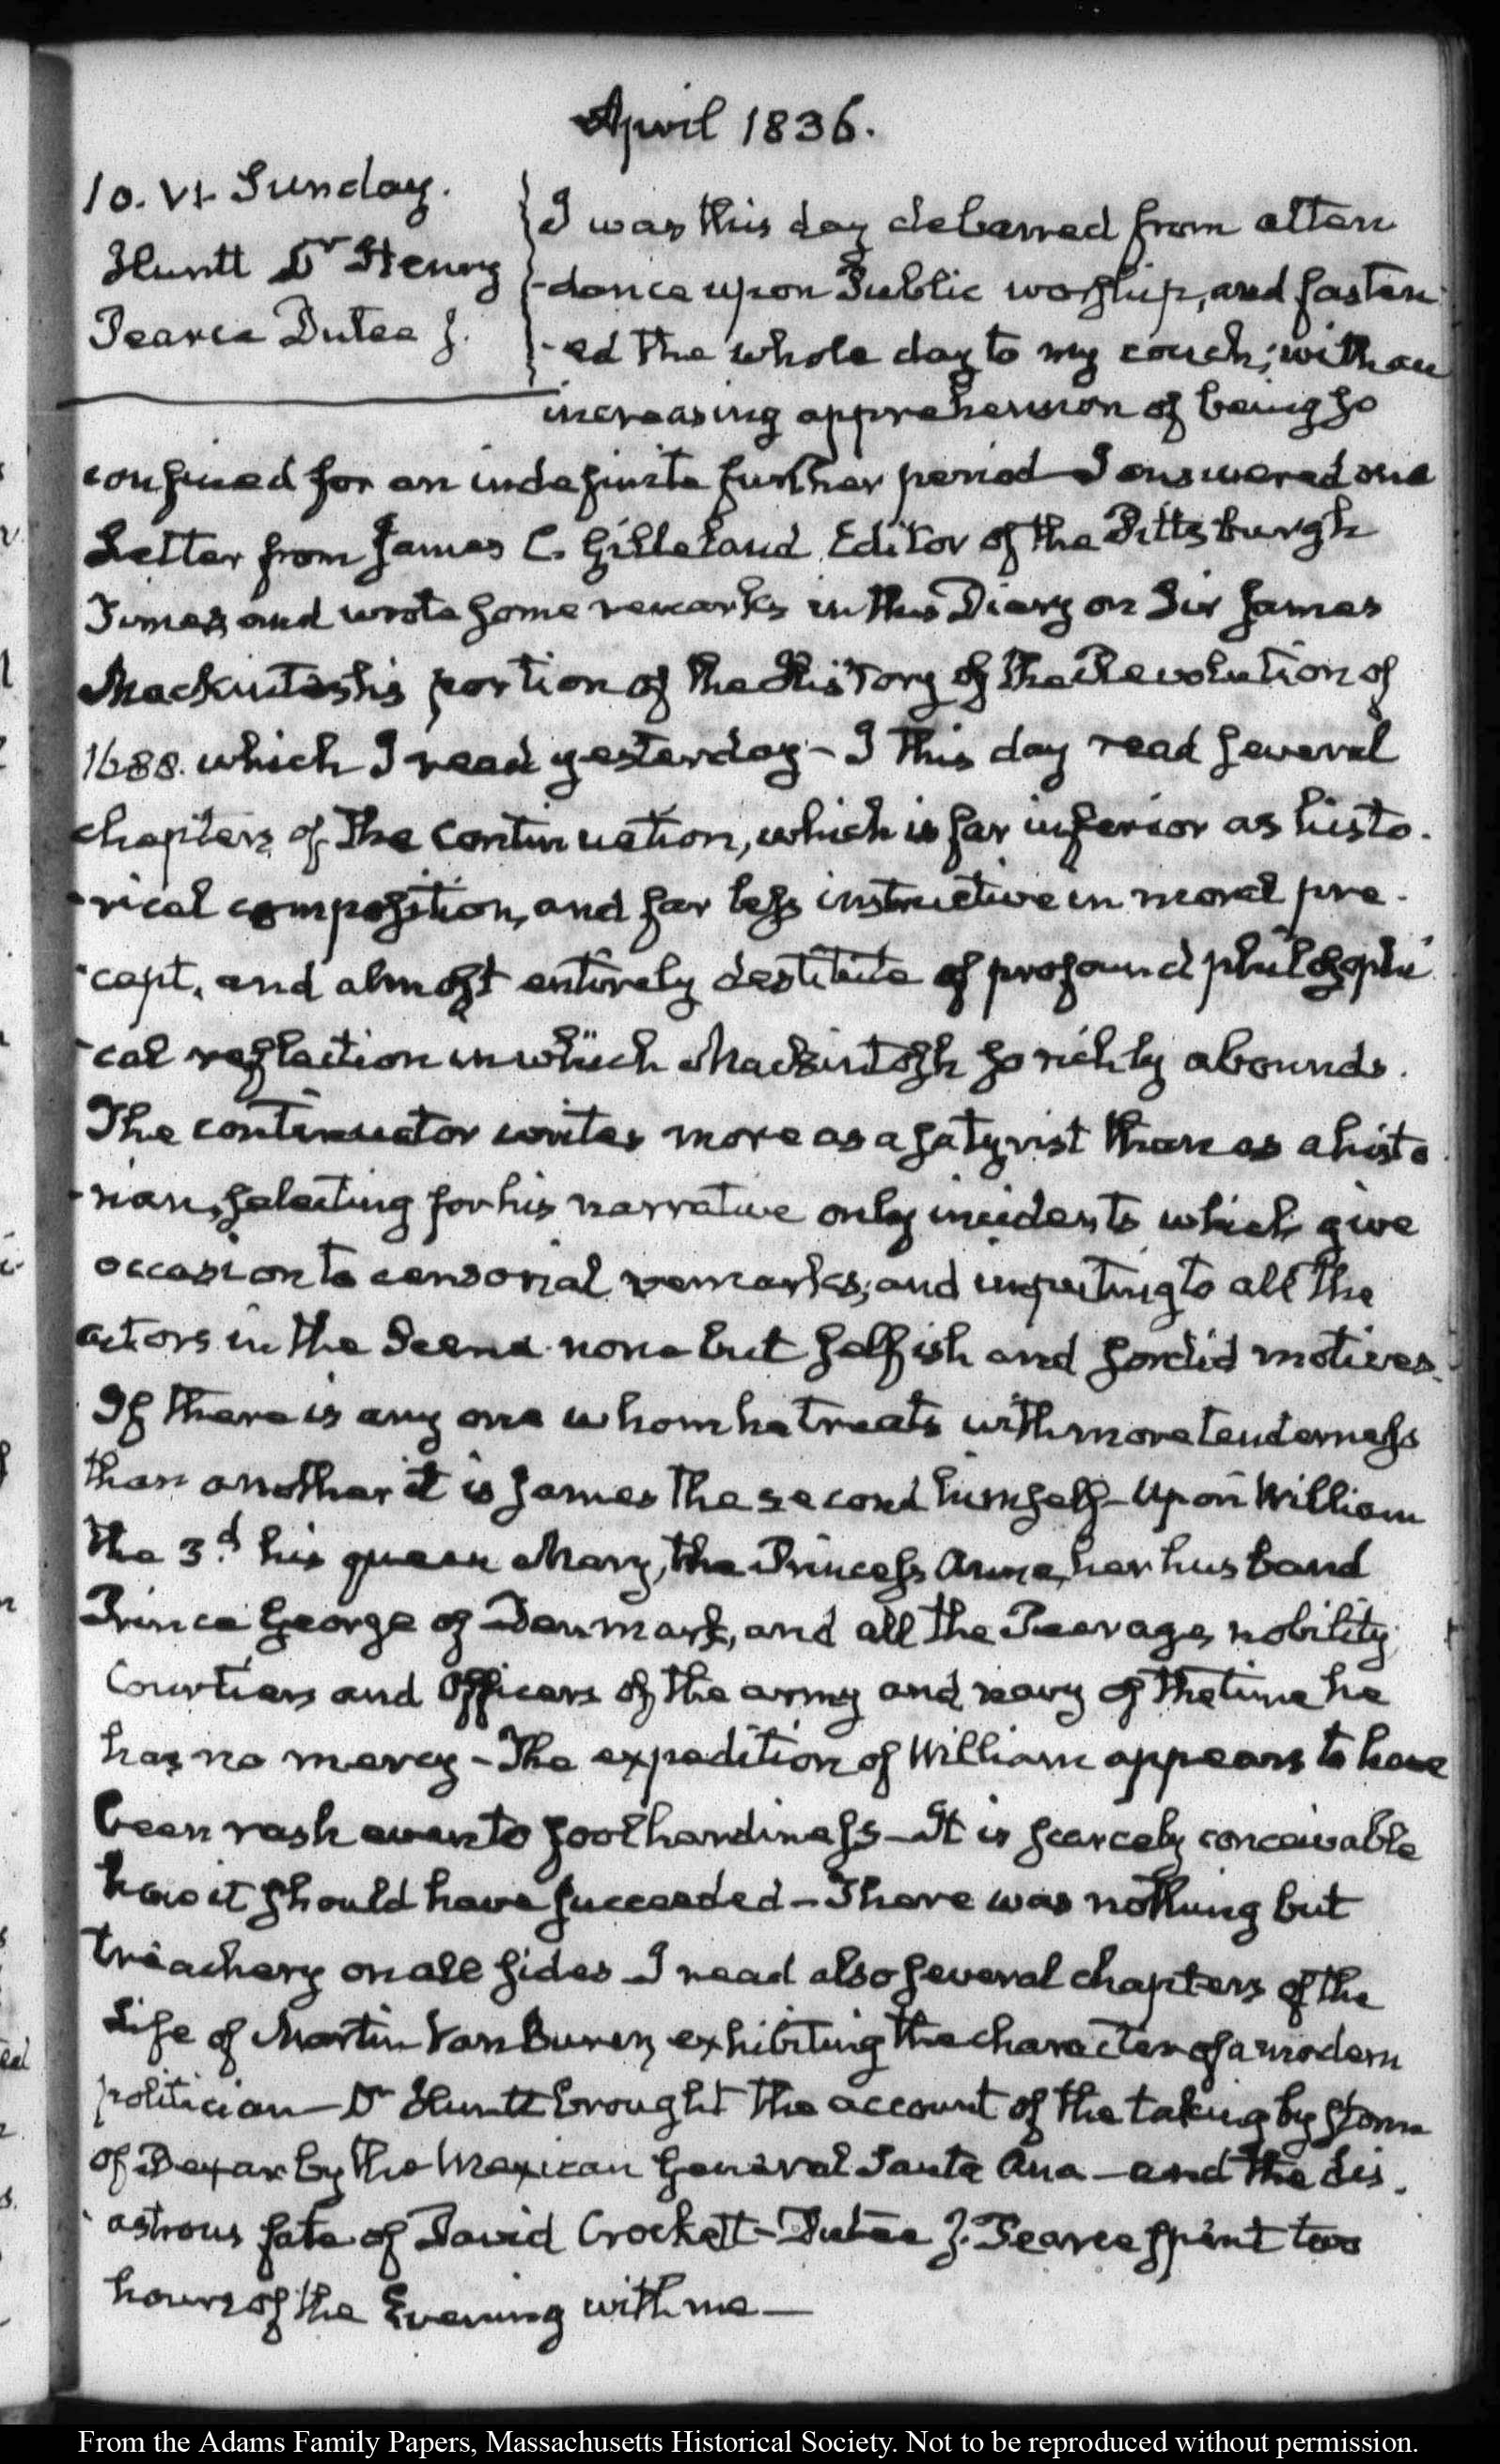 April 1836.
10. VI. Sunday.
Huntt Dr Henry
Pearce Dutee J.
I was this day debarred from atten
-dance upon Public worship, and fasten
-ed the whole day to my couch; with an
increasing apprehension of being so
confined for an indefinite further period I answered one
Letter from James C. Gilleland Editor of the Pittsburgh
Times, and wrote some remarks in this Diary on Sir James
Mackintosh's portion of the History of the Revolution of
1688. which I read yesterday - I this day read several
chapters of the Continuation, which is far inferior as histo-
-rical composition, and far less instructive in moral pre-
-cept, and almost entirely destitute of profound philosophi
-cal reflection in which Mackintosh so richly abounds.
The continuator writes more as a satyrist than as a histo
-rian, selecting for his narrative only incidents which give
occasion to censorial remarks; and imputing to all the
actors in the Scene none but selfish and sordid motives.
If there is any one whom he treats with more tenderness
than another it is James the second himself - Upon William
the 3d his queen Mary, the Princess Anne, her husband
Prince George of Denmark, and all the Peerage, nobility,
Courtiers and Officers of the army and navy of the time he
has no mercy - The expedition of William appears to have
been rash even to foolhardiness - It is scarcely conceivable
how it should have succeeded - There was nothing but
treachery on all sides - I read also several chapters of the
Life of Martin Van Buren, exhibiting the character of a modern
politician - Dr Huntt brought the account of the taking by storm
of Bexar by the Mexican General Santa Ana - and the dis-
-astrous fate of David Crockett - Dutee J. Pearce spent two
hours of the Evening with me -
From the Adams Family Papers, Massachusetts Historical Society. Not to be reproduced without permission.